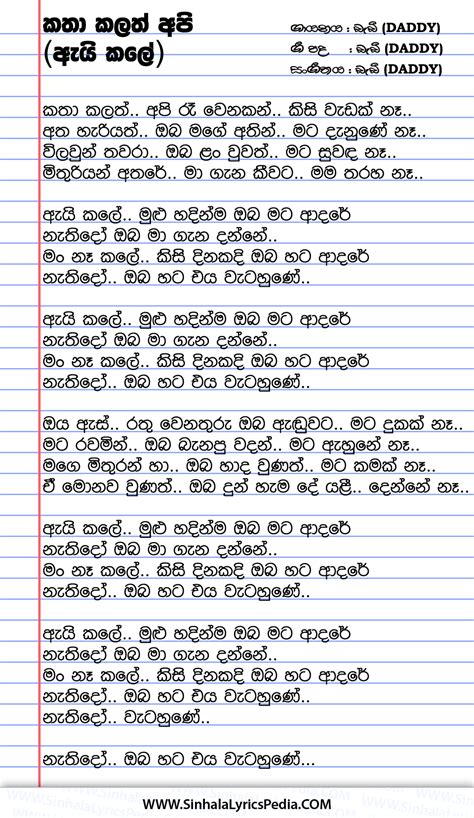 කතා කලත් අපි
(ඇයි කලේ)
ගායනය : ඩැඩී (DADDY)
ගී පද : ඩැඩී (DADDY)
සංගීතය : ඩැඩී (DADDY)
කතා කලත්.. අපි රෑ වෙනකන්.. කිසි වැඩක් නෑ..
අත හැරියත්.. ඔබ මගේ අතින්.. මට දැනුණේ නෑ..
විලවුන් තවරා.. ඔබ ළං වුවත්.. මට සුවඳ නෑ..
මිතුරියන් අතරේ.. මා ගැන කීවට.. මම තරහ නෑ..
ඇයි කලේ.. මුළු හදින්ම ඔබ මට ආදරේ
නැතිදෝ ඔබ මා ගැන දන්නේ..
මං නෑ කලේ.. කිසි දිනකදි ඔබ හට ආදරේ
නැතිදෝ.. ඔබ හට එය වැටහුණේ..
ඇයි කලේ.. මුළු හදින්ම ඔබ මට ආදරේ
නැතිදෝ ඔබ මා ගැන දන්නේ..
මං නෑ කලේ.. කිසි දිනකදි ඔබ හට ආදරේ
නැතිදෝ.. ඔබ හට එය වැටහුණේ..
ඔය ඇස්.. රතු වෙනතුරු ඔබ ඇඬුවට.. මට දුකක් නෑ..
මට රවමින්.. ඔබ බැනපු වදන්.. මට ඇහුනේ නෑ..
මගෙ මිතුරන් හා.. ඔබ හාද වුණත්.. මට කමක් නෑ..
ඒ මොනව වුණත්.. ඔබ දුන් හැම දේ යළී.. දෙන්නේ නෑ..
ඇයි කලේ.. මුළු හදින්ම ඔබ මට ආදරේ
නැතිදෝ ඔබ මා ගැන දන්නේ..
මං නෑ කලේ.. කිසි දිනකදි ඔබ හට ආදරේ
නැතිදෝ.. ඔබ හට එය වැටහුණේ..
ඇයි කලේ.. මුළු හදින්ම ඔබ මට ආදරේ
නැතිදෝ ඔබ මා ගැන දන්නේ..
මං නෑ කලේ.. කිසි දිනකදි ඔබ හට ආදරේ
නැතිදෝ.. ඔබ හට එය වැටහුණේ..
නැතිදෝ.. වැටහුණේ..
නැතිදෝ.. ඔබ හට එය වැටහුණේ...
WWW.SinhalaLyricsPedia.COM